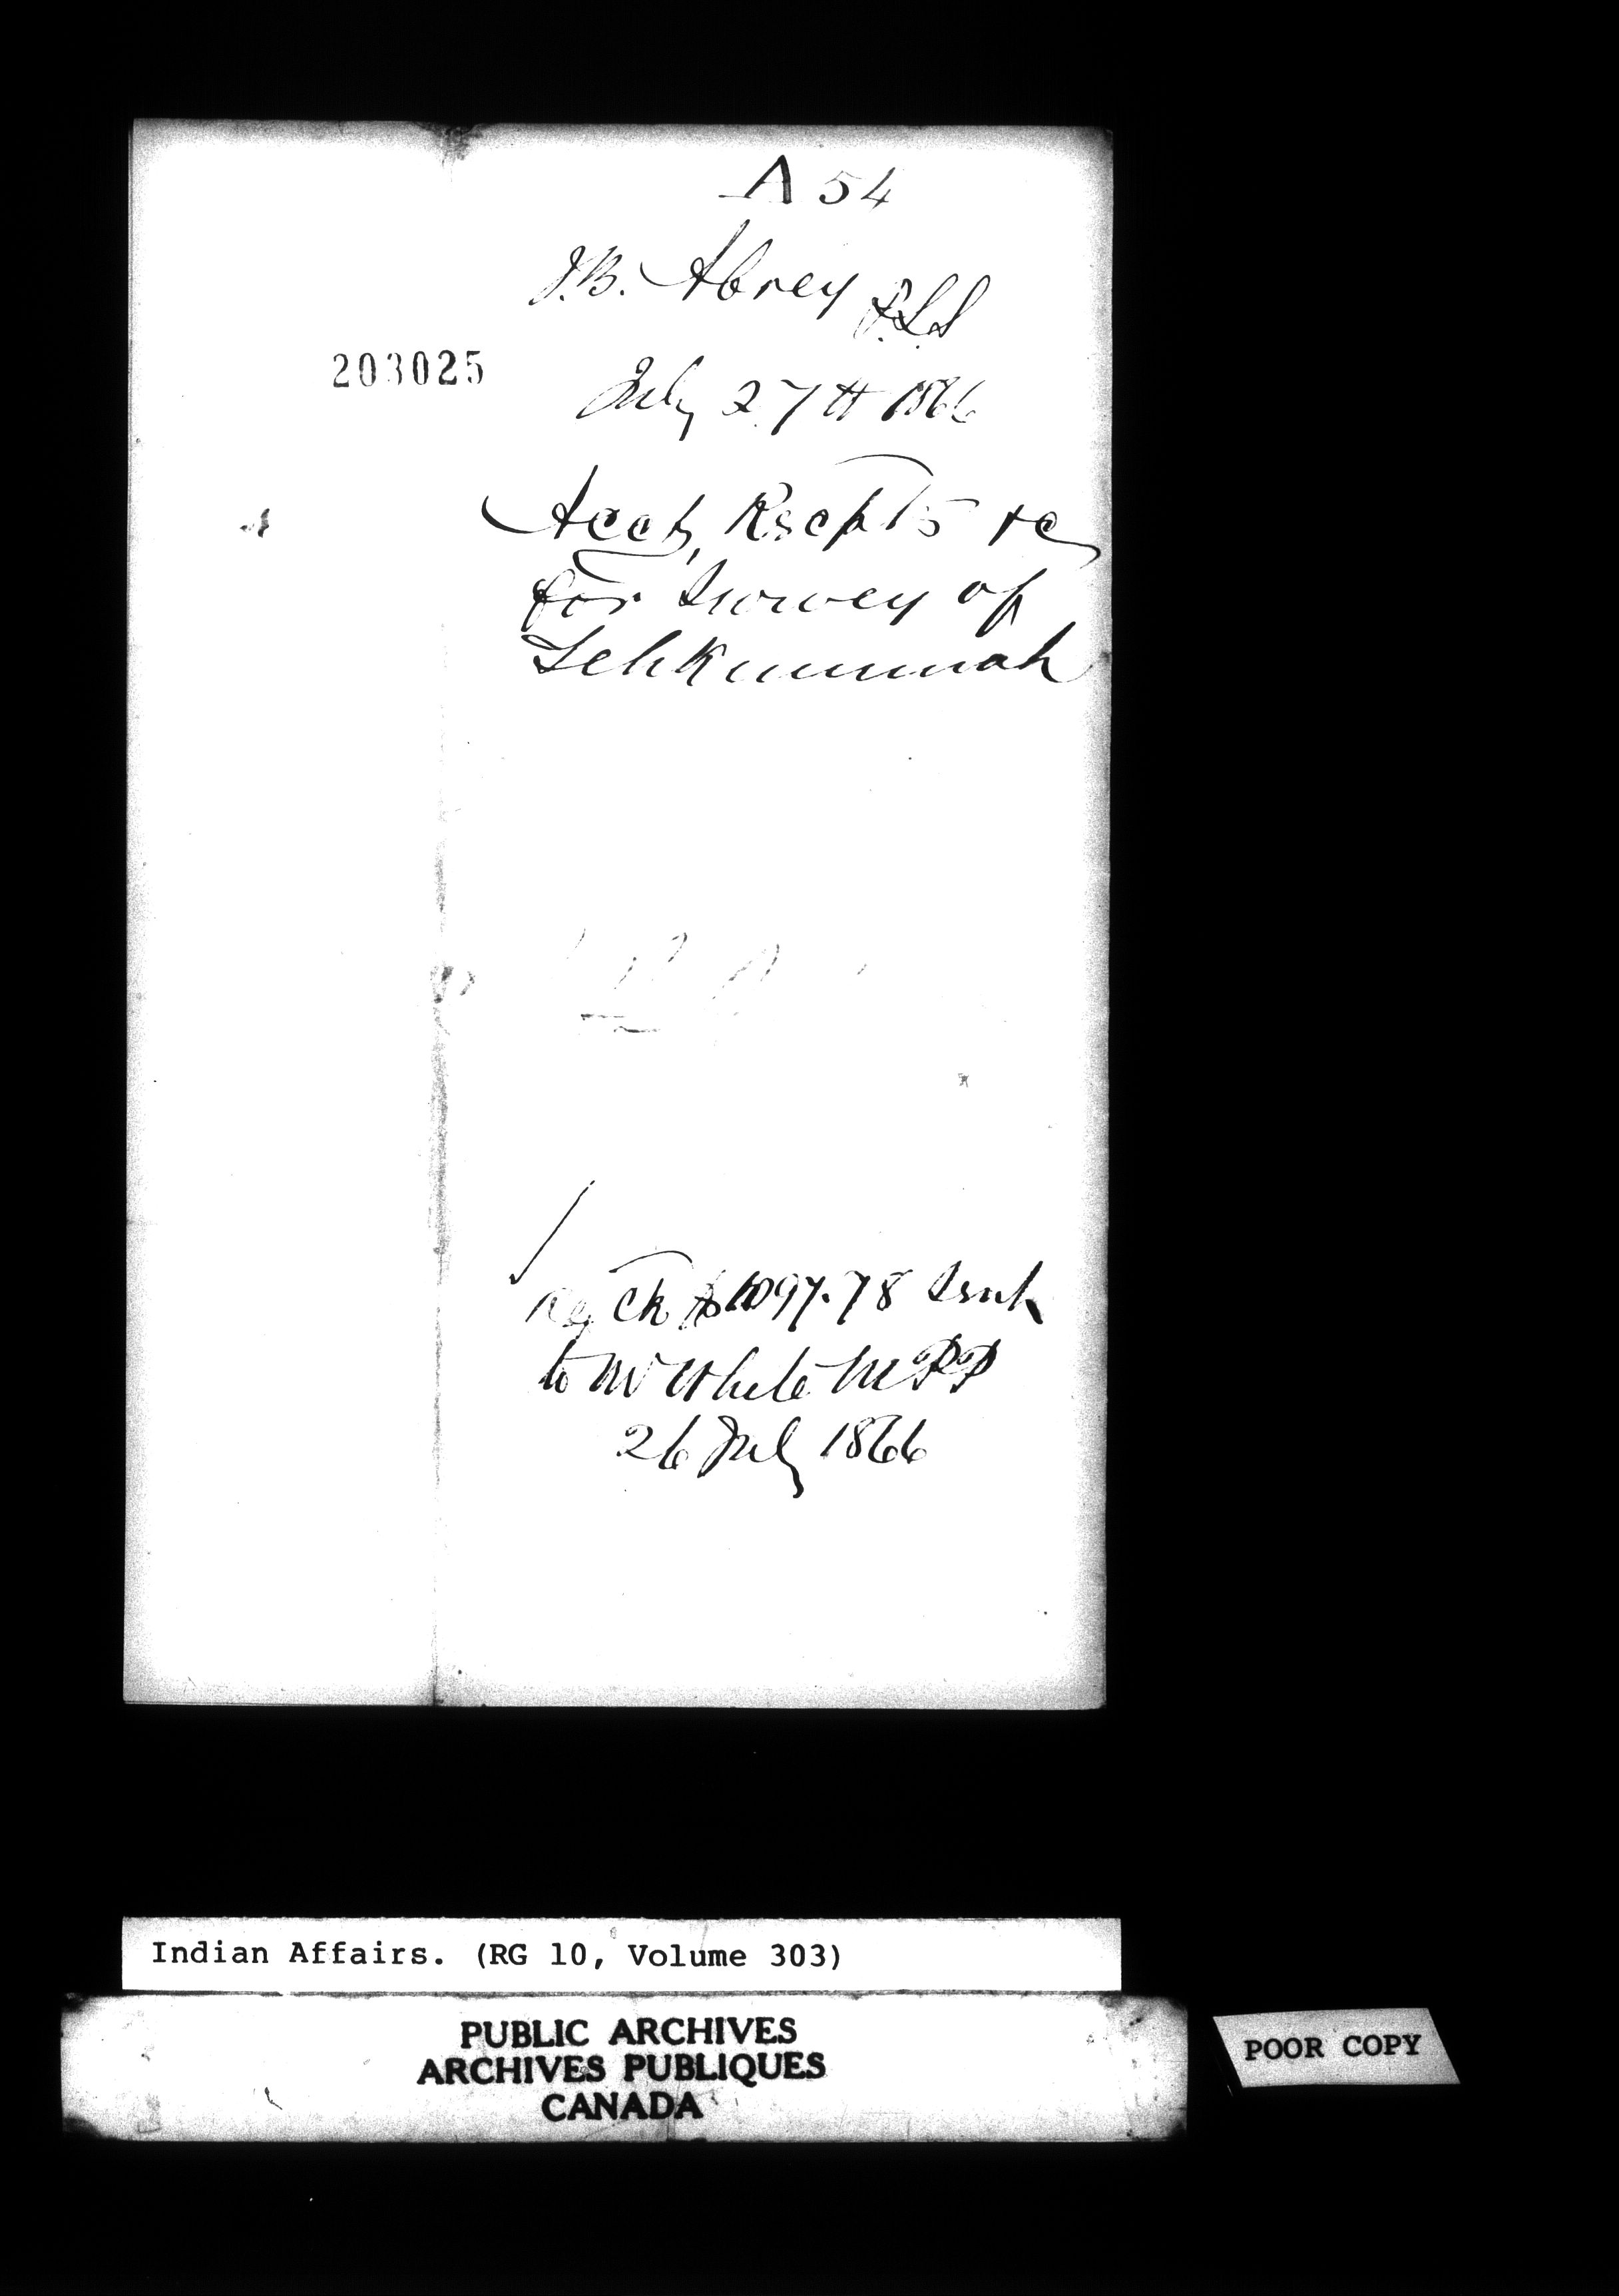 A 54
J.B. Abrey P.L.S
203025
July 27th 1866
Acct, Recpts &c
for Survey of
Tehkummah
Ck $1097.78 sent
to Mr White MPP
26 July 1866
Indian Affairs. (RG 10, Volume 303)
PUBLIC ARCHIVES
ARCHIVES PUBLIQUES
CANADA
POOR COPY